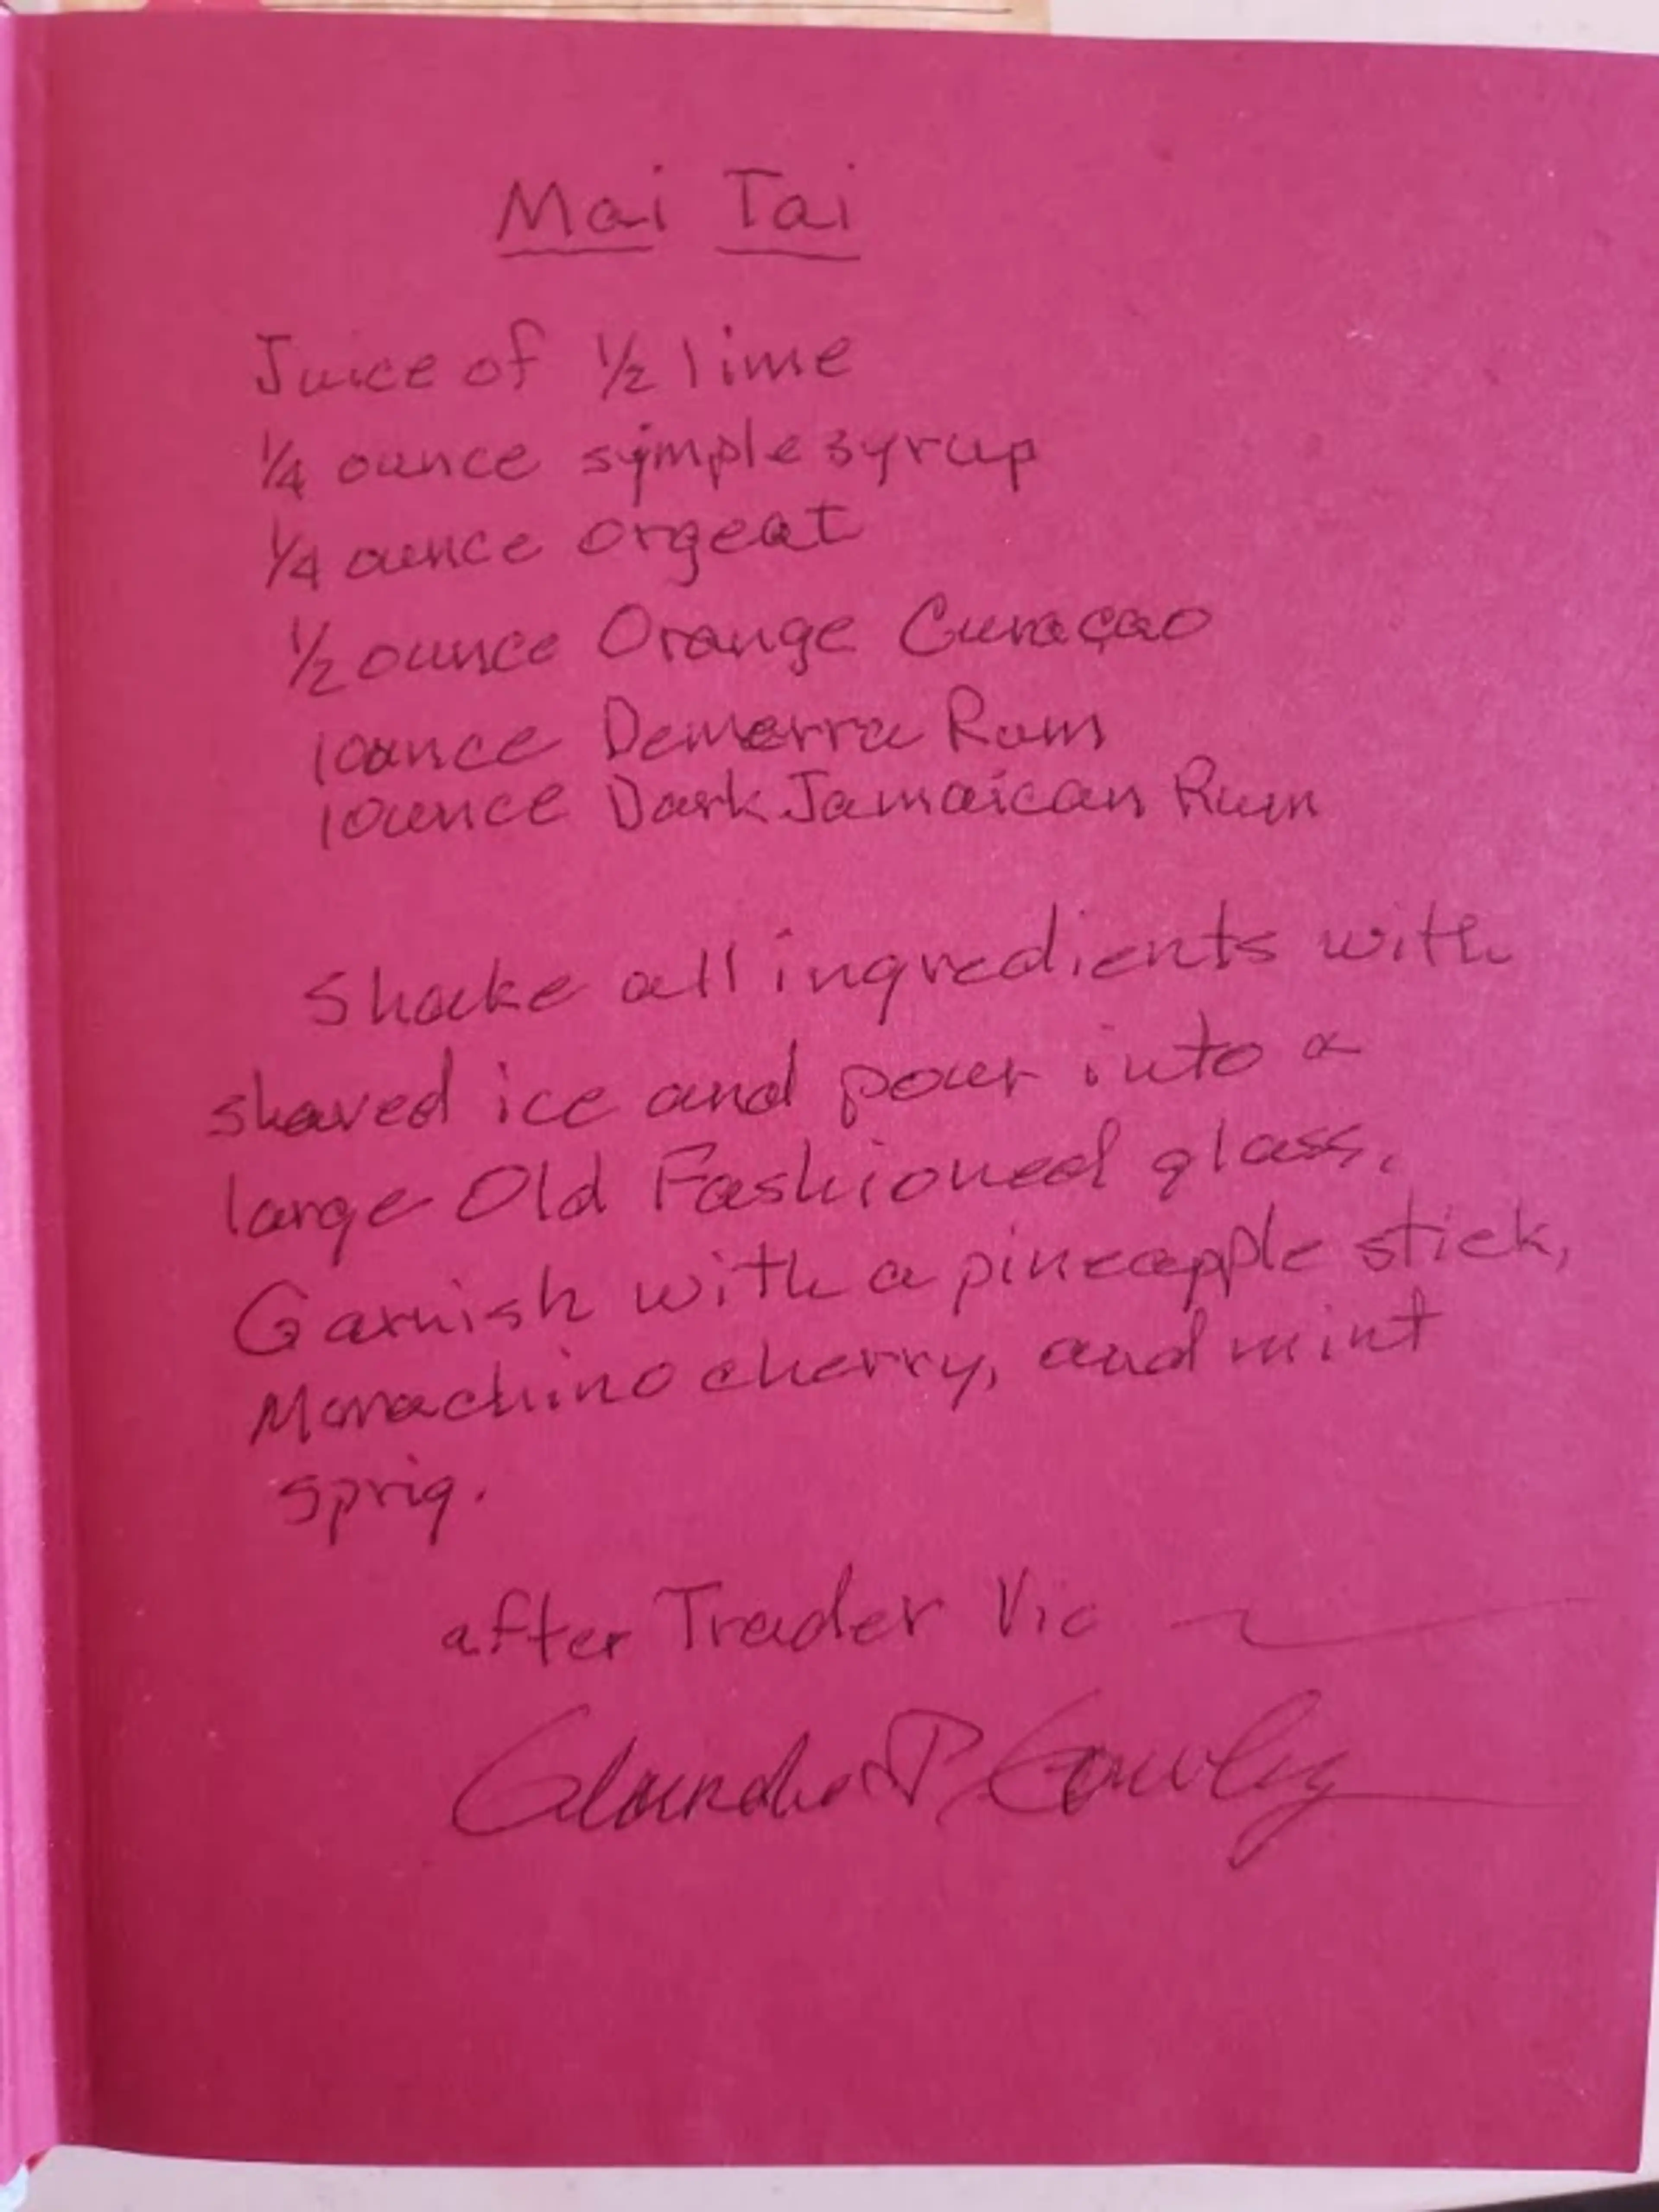 Mai Tai
Juice of ½ lime
¼ ounce symple syrup
¼ ounce orgeat
½ ounce Orange Curaçao
1 ounce Demerra Rum
1 ounce Dark Jamaican Rum
Shake all ingredients with
shaved ice and pour into a
large Old Fashioned glass.
Garnish with a pineapple stick,
Marachino cherry, and mint
sprig.
after Trader Vic